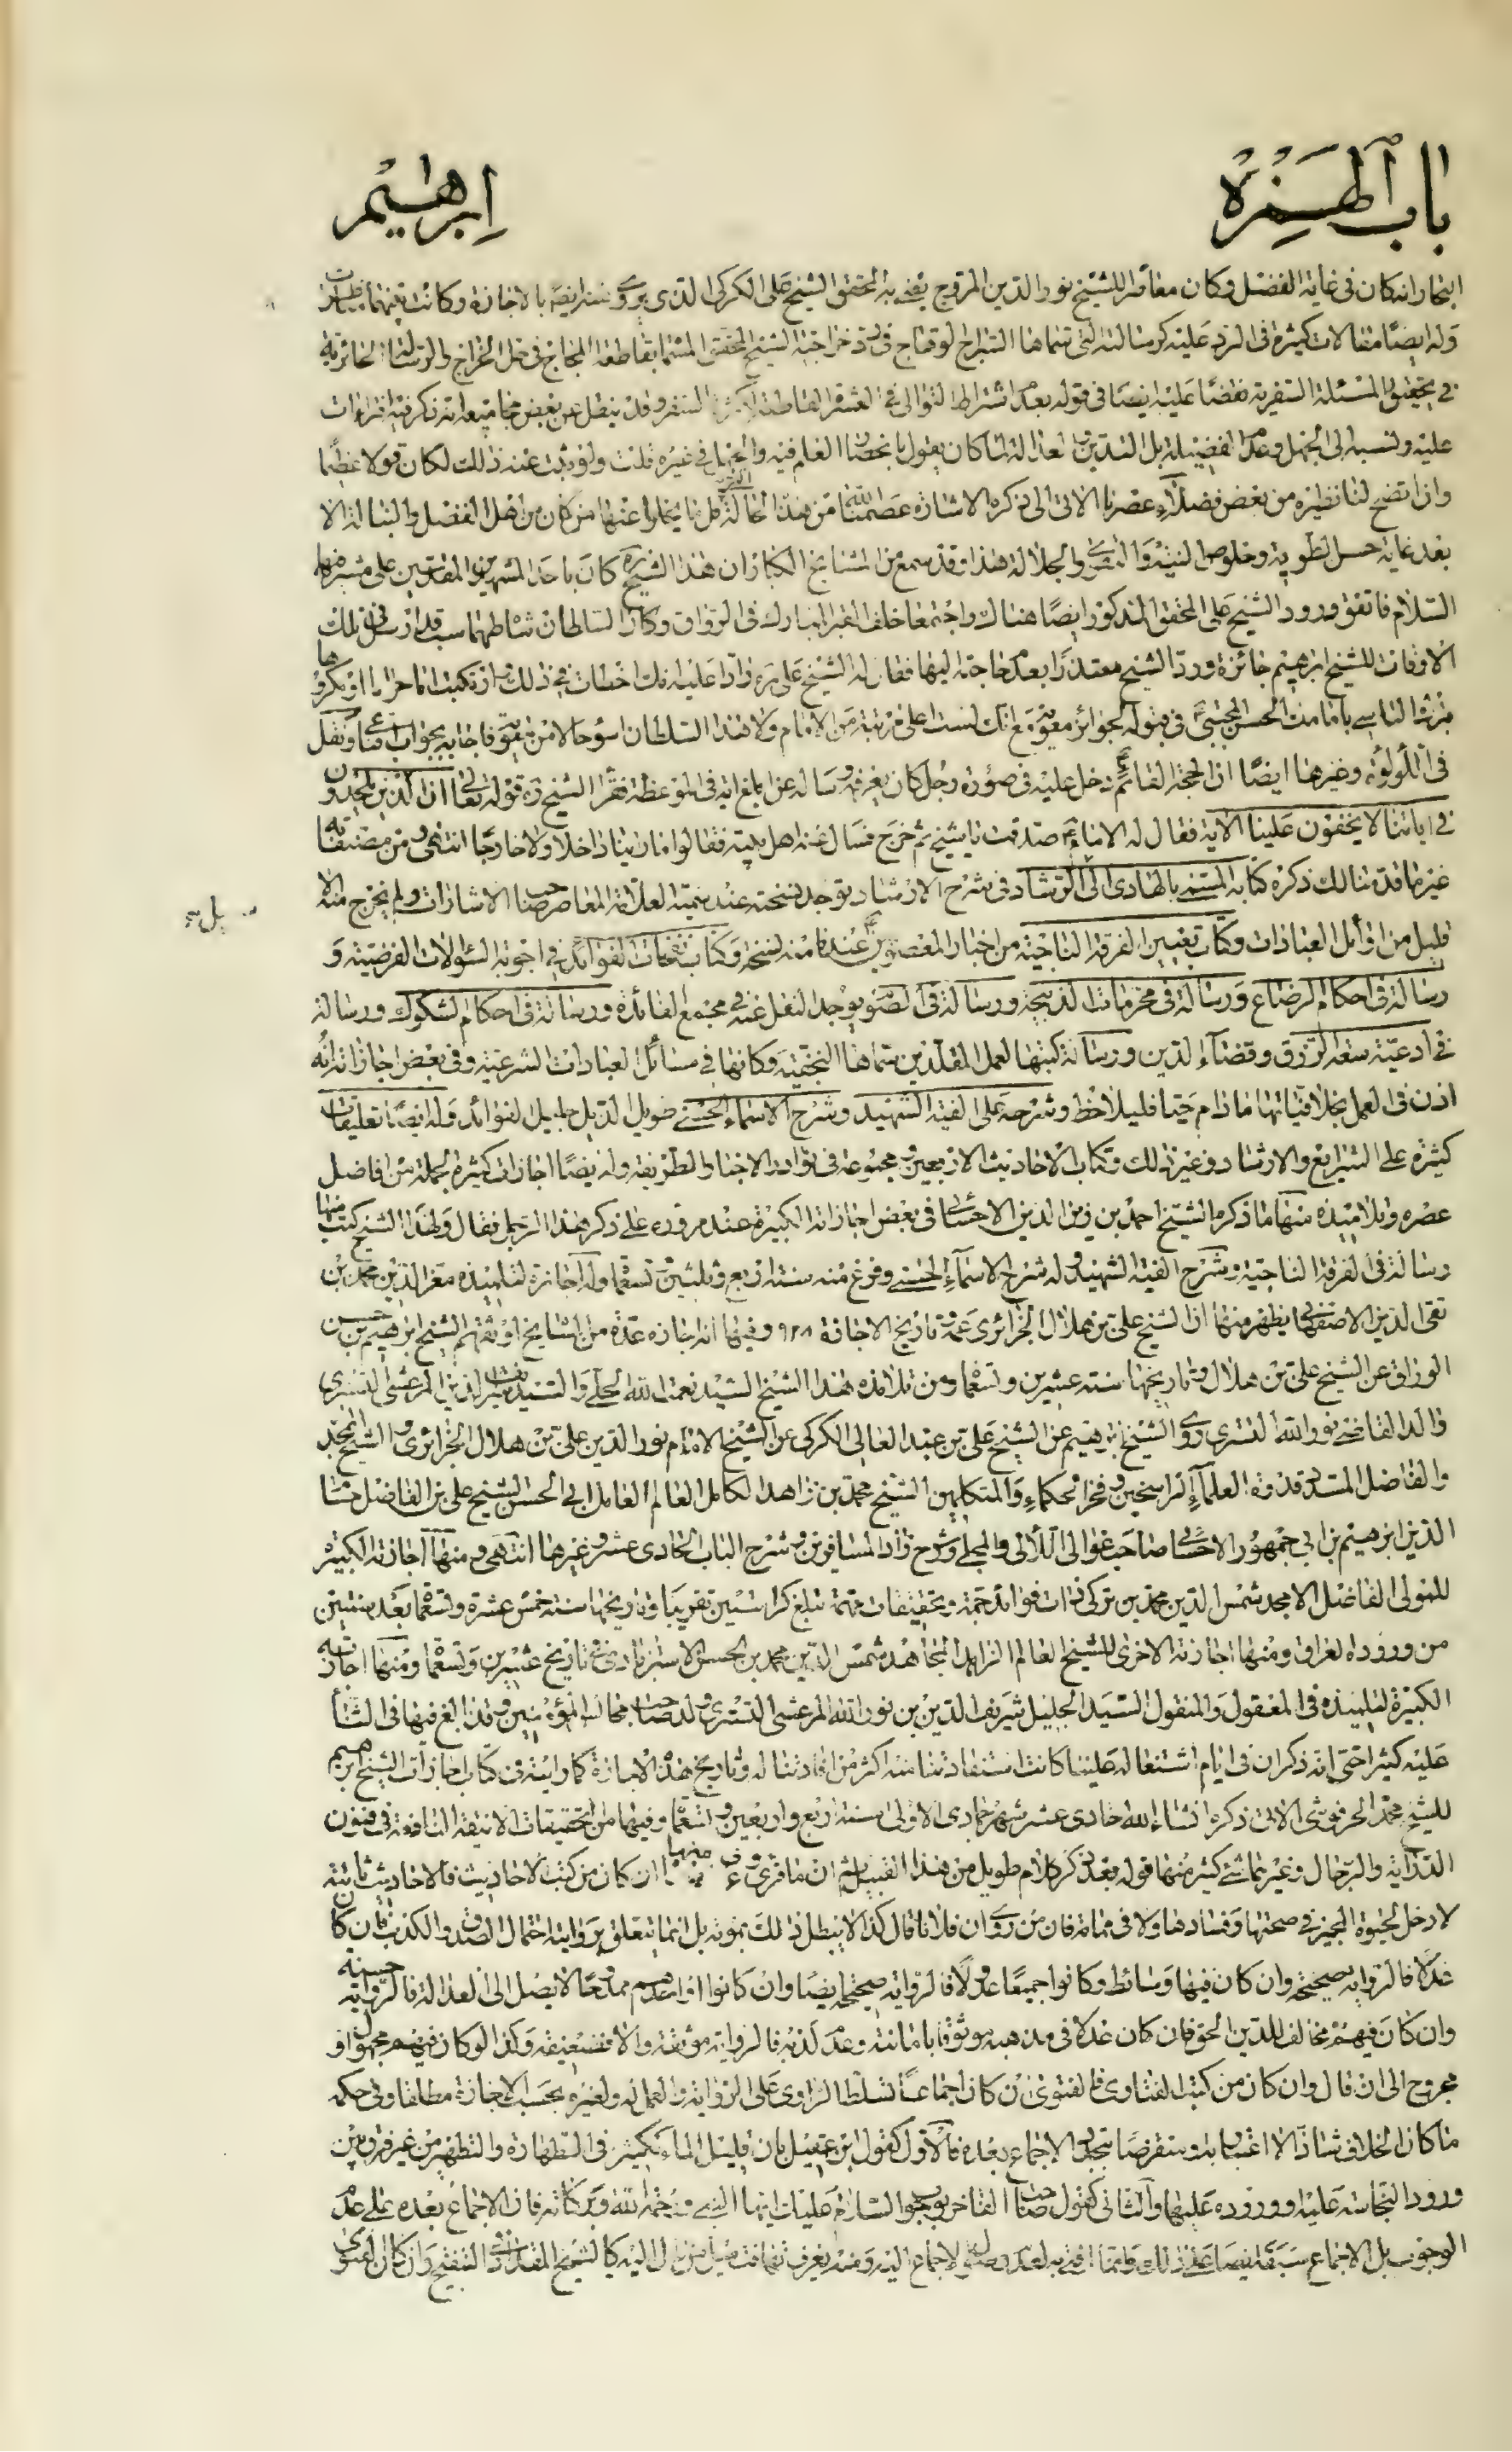 باب الهمزة
ابراهيم
البحار انه كان فى غاية الفضل وكان معاصرا للشيخ نور الدين المروج المحقق الشيخ على الكركى الذى يروى عنه ايضا بالاجازة وكانت بينهما مناظرات
وله ايضا مقالات كثيرة فى الرد عليه كرسالته التى سماها السراج الوهاج فى رد خراجية الشيخ المحقق المسماة بقاطعة اللجاج فى حل الخراج والرسالة الحائرية
فى تحقيق المسئلة السفرية نقضا عليه ايضا فى قوله بعد اشتراط التوالى فى العشر القاطعة لكثرة السفر وقد ينقل عن بعض مجاميعه انه ذكر فيه
عليه ونسبه الى الجهل وعدم الفضيلة بل التدين لعدالة كان يقول العلم فيه وفى غيره قلت ولو ثبت عنه ذلك لكان قولا عظيما
واذا اتضح لنا نظيره من بعض فضلاء عصرنا الاتى الى ذكره الاشارة عصمنا الله من هذه الحالة قل ما يخلو عنها من كان من اهل الفضل والنبالة الا
بعد غاية حسن الطوية وخلوص النية والجلالة هذا وقد سمع من المشايخ الكبار ان هذا الشيخ ره كان باحد المشهدين المقدسين على مشرفهما
السلام فاتفق ورود الشيخ على المحقق المذكور ايضا هناك واجتمعا خلف القبر المبارك فى الرواق وكان السلطان شاه طهماسب قد ارسل فى تلك
الاوقات للشيخ ابرهيم جائزة ورد الشيخ معتذرا بعدم حاجته اليها فقال له الشيخ على ره رادا عليه انك اخطأت فى ذلك وارتكبت اما حراما او مكروها
بترك التاسى بامامنا الحسن المجتبى فى قبوله لجوائز معوية مع انك لست اعلى مرتبة من الامام ولا هذا السلطان اسوء حالا من معوية فاجابه بجواب ونقل
فى اللؤلؤة وغيرها ايضا ان الحجة القائم دخل عليه فى صورة رجل كان يعرفه وساله عن ابلغ اية فى الموعظة فقرا الشيخ ره قوله تعالى ان الذين يلحدون
فى اياتنا لا يخفون علينا الاية فقال له الامام صدقت يا شيخ ثم خرج فسال عنه اهل بيته فقالوا ما راينا داخلا ولا خارجا انتهى ومن مصنفاته
غير ما قدمنا لك ذكره كتابه المسمى بالهادى الى الرشاد فى شرح الارشاد يوجد نسخته عند سمية العلامة المعاصر صاحب الاشارات ولم يخرج منه الا
قليل من اوائل العبادات وكتاب تعيين الفرقة الناجية من اخبار المعصومين عندنا منه نسخة وكتاب نفحات الفوائد فى اجوبة السؤالات الفرضية و
رسالة فى احكام الرضاع ورسالة فى محرمات الذبيحة ورسالة فى الصوم يوجد النقل عنه فى مجمع الفائدة ورسالة فى احكام الشكوك ورسالة
فى ادعية سعة الرزق وقضاء الدين ورسالة كتبها لعمل المقلدين سماها النجفية وكانها فى مسائل العبادات الشرعية وفى بعض اجازاته انه
اذن فى العمل بخلافياتها ما دام حيا فليلاحظ وشرحه على الفية الشهيد وشرح الاسماء الحسنى طويل الذيل جليل الفوائد وله ايضا تعليقات
كثيرة على الشرايع والارشاد وغير ذلك وكتاب الاحاديث الاربعين ومجموعة فى نوادر الاخبار الطريفة وله ايضا اجازات كثيرة لجملة من افاضل
عصره وتلاميذه منها ما ذكره الشيخ احمد بن زين الدين الاحسائى فى بعض اجازاته الكبيرة عند مروره على ذكر هذا الرجل فقال ولهذا الشيخ كتب منها
رسالة فى الفرقة الناجية وشرح الفية الشهيد وله شرح الاسماء الحسنى وفرغ منه سنة اربع وثلثين وتسعمأة وله اجازة لتلميذه معز الدين محمد بن
تقى الدين الاصفهانى يظهر منها ان الشيخ على بن هلال الجزائرى عمه وتاريخ الاجازة ٩٢٨ وفيها انه اجازه عدة من المشايخ اوثقهم الشيخ ابرهيم بن حسن
الوراق عن الشيخ على بن هلال وتاريخها سنة عشرين وتسعمأة ومن تلامذة هذا الشيخ السيد نعمة الله الحلى والسيد شريف الدين المرعشى التسترى
والد القاضى نور الله التسترى روى الشيخ ابرهيم عن الشيخ على بن عبد العالى الكركى عن الشيخ الامام نور الدين على بن هلال الجزائرى و الشيخ الامجد
والفاضل المسدد قدوة العلماء الراسخين وفخر الحكماء والمتكلمين الشيخ محمد بن زاهد الكامل العالم العامل ابى الحسن الشيخ على بن الفاضل حسام
الدين ابرهيم بن ابى جمهور الاحسائى صاحب غوالى اللالى والمجلى وشرح زاد المسافرين وشرح الباب الحادى عشر وغيرها انتهى ومنها اجازته الكبيرة
للمولى الفاضل الامجد شمس الدين محمد بن تركى ذات فوائد جمة وتحقيقات مهمة تبلغ كراستين تقريبا وتاريخها سنة خمس عشرة وتسعمأة بعد سنتين
من وروده العراق ومنها اجازته الاخرى للشيخ العالم الزاهد المجاهد شمس الدين محمد بن الحسن الاسترابادى فى تاريخ عشرين وتسعمأة ومنها اجازته
الكبيرة لتلميذه فى المعقول والمنقول السيد الجليل شريف الدين بن نور الله المرعشى التسترى والد صاحب مجالس المؤمنين وقد بالغ فيها فى الثناء
عليه كثيرا حتى انه ذكر ان فى ايام اشتغاله علينا كانت استفادتنا منه اكثر من افادتنا له وتاريخ هذه الاجازة كما رايته فى كتاب اجازات الشيخ ابرهيم
للشيخ محمد الحرفوشى الاتى ذكره انشاء الله حادى عشر شهر جمادى الاولى سنة اربع واربعين وتسعمأة وفيها من التحقيقات الانيقة النافعة فى فنون
الدراية والرجال وغيرهما شئ كثير منها قوله بعد ذكر كلام طويل من هذا القبيل ثم ان ما قرئ ان كان من كتب الاحاديث فالاحاديث ثابتة
لا دخل لحيوة المجيز فى صحتها وفسادها ولا فى مماته فان من روى ان فلانا قال كذا لا يبطل ذلك بموته بل انما يتعلق بروايته احتمال الصدق والكذب فان كان
عدلا فالرواية صحيحة وان كان فيها وسائط وكانوا جميعا عدولا فالرواية صحيحة ايضا وان كانوا او احدهم ممدوحا لا يصل الى العدالة فالرواية حسنة
وان كان فيهم مخالف للدين الحق فان كان عدلا فى مذهبه موثوقا بامانته وعدم كذبه فالرواية موثقة والا فضعيفة وكذا لو كان فيهم مجهول او
مجروح الى ان قال وان كان من كتب الفتاوى فالفتوى ان كان اجماعا تسلط الراوى على الرواية والعمل له ولغيره بحسب الاجازة مطلقا وفى حكمه
ما كان الخلاف شاذا لا اعتبار به ومنقرضا تجدد الاجماع بعده فالاول كقول ابن عقيل بان قليل الماء ككثير فى الطهارة والتطهير من غير فرق بين
ورود النجاسة عليه ووروده عليها والثانى كقول صاحب الفاخر بوجوب السلام عليك ايها النبى ورحمة الله وبركاته فان الاجماع بعده على عدم
الوجوب بل الاجماع سبقه ايضا على ذلك وانما افتى به لعدم وصول الاجماع اليه ومنه يعرف من مال اليه كالشيخ المقداد فى التنقيح وان كان الفتوى